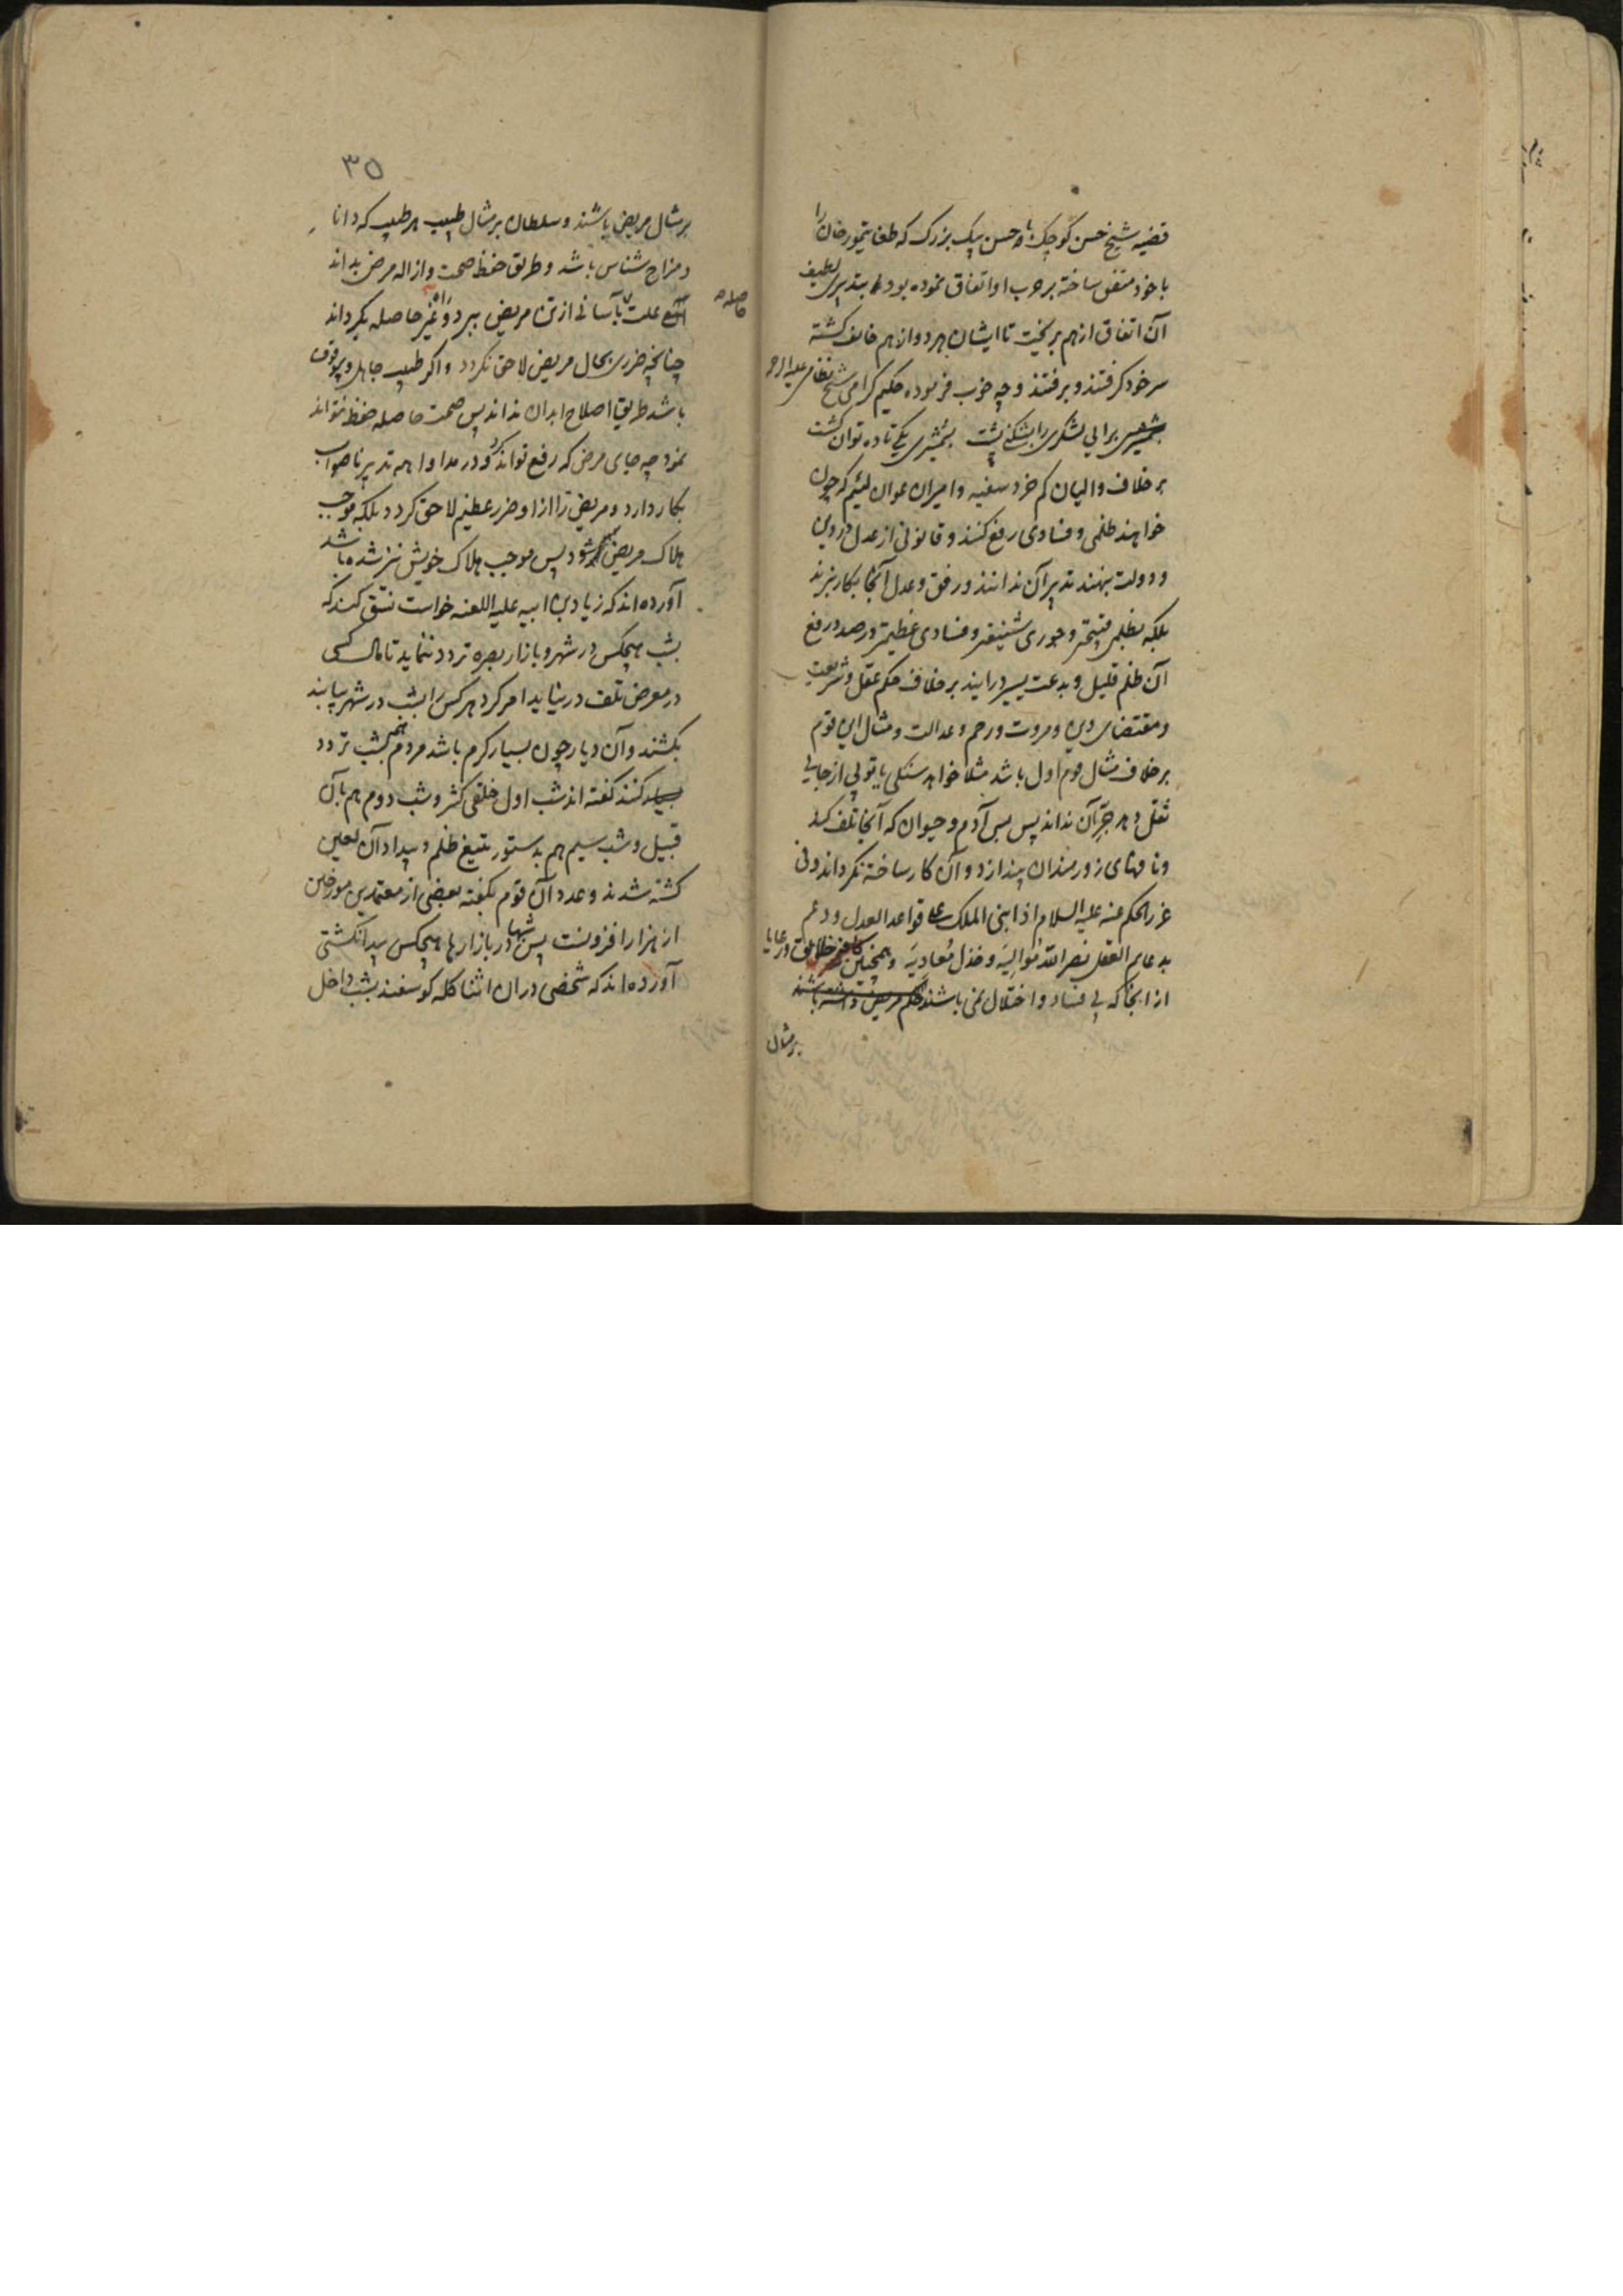 قضیه شیخ حسن کوچک با حسن بیک بزرک که طغا تیمور خان را
با خود متفق ساخته بر حرب او اتفاق نموده بود بتدبیری لطیف
آن اتفاق از هم بریخت تا ایشان هر دو از هم خایف کشته
سر خود کرفتند و برفتند و چه خوب فرموده حکیم کرامی شیخ نظامی علیه الرحمه
برایی لشکری را بشکنی پشت بشمشیری یکی تا ده توان کشت
بر خلاف والیان کم خرد سفیه و امیران عوان لئیم که چون
خواهند ظلمی و فسادی رفع کنند و قانونی از عدل و دین
و دولت بنهند تدبیر آن ندانند و رفق و عدل آنجا بکار نبرند
بلکه بظلمی قبیحتر و جوری شنیعتر و فسادی عظیمتر در صدد رفع
آن ظلم قلیل و بدعت یسیر درایند بر خلاف حکم عقل و شریعت
و مقتضای دین و مروت و رحم و عدالت و مثال این قوم
بر خلاف مثال قوم اول باشد مثلا خواهد سنکی یا توپی از جایی
نقل دهد جرّ آن نداند پس بس آدم و حیوان که آنجا تلف کند
و نافهای زورمندان بیندازد و آن کار ساخته نکرداند و فی
غرر الحکم عنه علیه السلام اذا بنی الملک علی قواعد العدل و دعم
بدعایم العقل نصر الله موالیه و خذل معادیه و همچنین خلایق و رعایا
از آنجا که بی فساد و اختلال نمی باشند حکم مریض داشته باشند
بر مثال
۳۵
بر مثال مریض باشند و سلطان بر مثال طبیب هر طبیب که دانا
و مزاج شناس باشد و طریق حفظ صحت و ازاله مرض بداند
علت بآسانی از تن مریض ببرد و حاصله بکرداند
حاصله
چنانچه ضرری بحال مریض لاحق نکردد و اکر طبیب جاهل و بیوقوف
باشد طریق اصلاح ابدان نداند پس صحت حاصله حفظ نتواند
نمود چه جای مرض که رفع تواند کرد و در مداوا همه تدبیر ناصواب
بکار دارد و مریض را از او ضرر عظیم لاحق کردد بلکه موجب
هلاک مریض شود پس موجب هلاک خویش نیز شده باشد
آورده اند که زیاد بن ابیه علیه اللعنه خواست نسق کند که
بشب هیچکس در شهر و بازار بصره تردد ننماید تا مال کسی
در معرض تلف در نیاید امر کرد هر کس را بشب در شهر بیابند
بکشند و آن دیار چون بسیار کرم باشد مردم همه بشب تردد
کنند کفته اند شب اول خلقی کثیر و شب دوم هم بآن
قبیل و شب سیم هم بدستور بتیغ ظلم و بیداد آن لعین
کشته شدند و عدد آن قوم بکفته بعضی از معتمدین مورخین
از هزار افزونست پس شبها در بازارها هیچکس پیدا نکشتی
آورده اند که شخصی در ان اثنا کله کوسفند بشب داخل